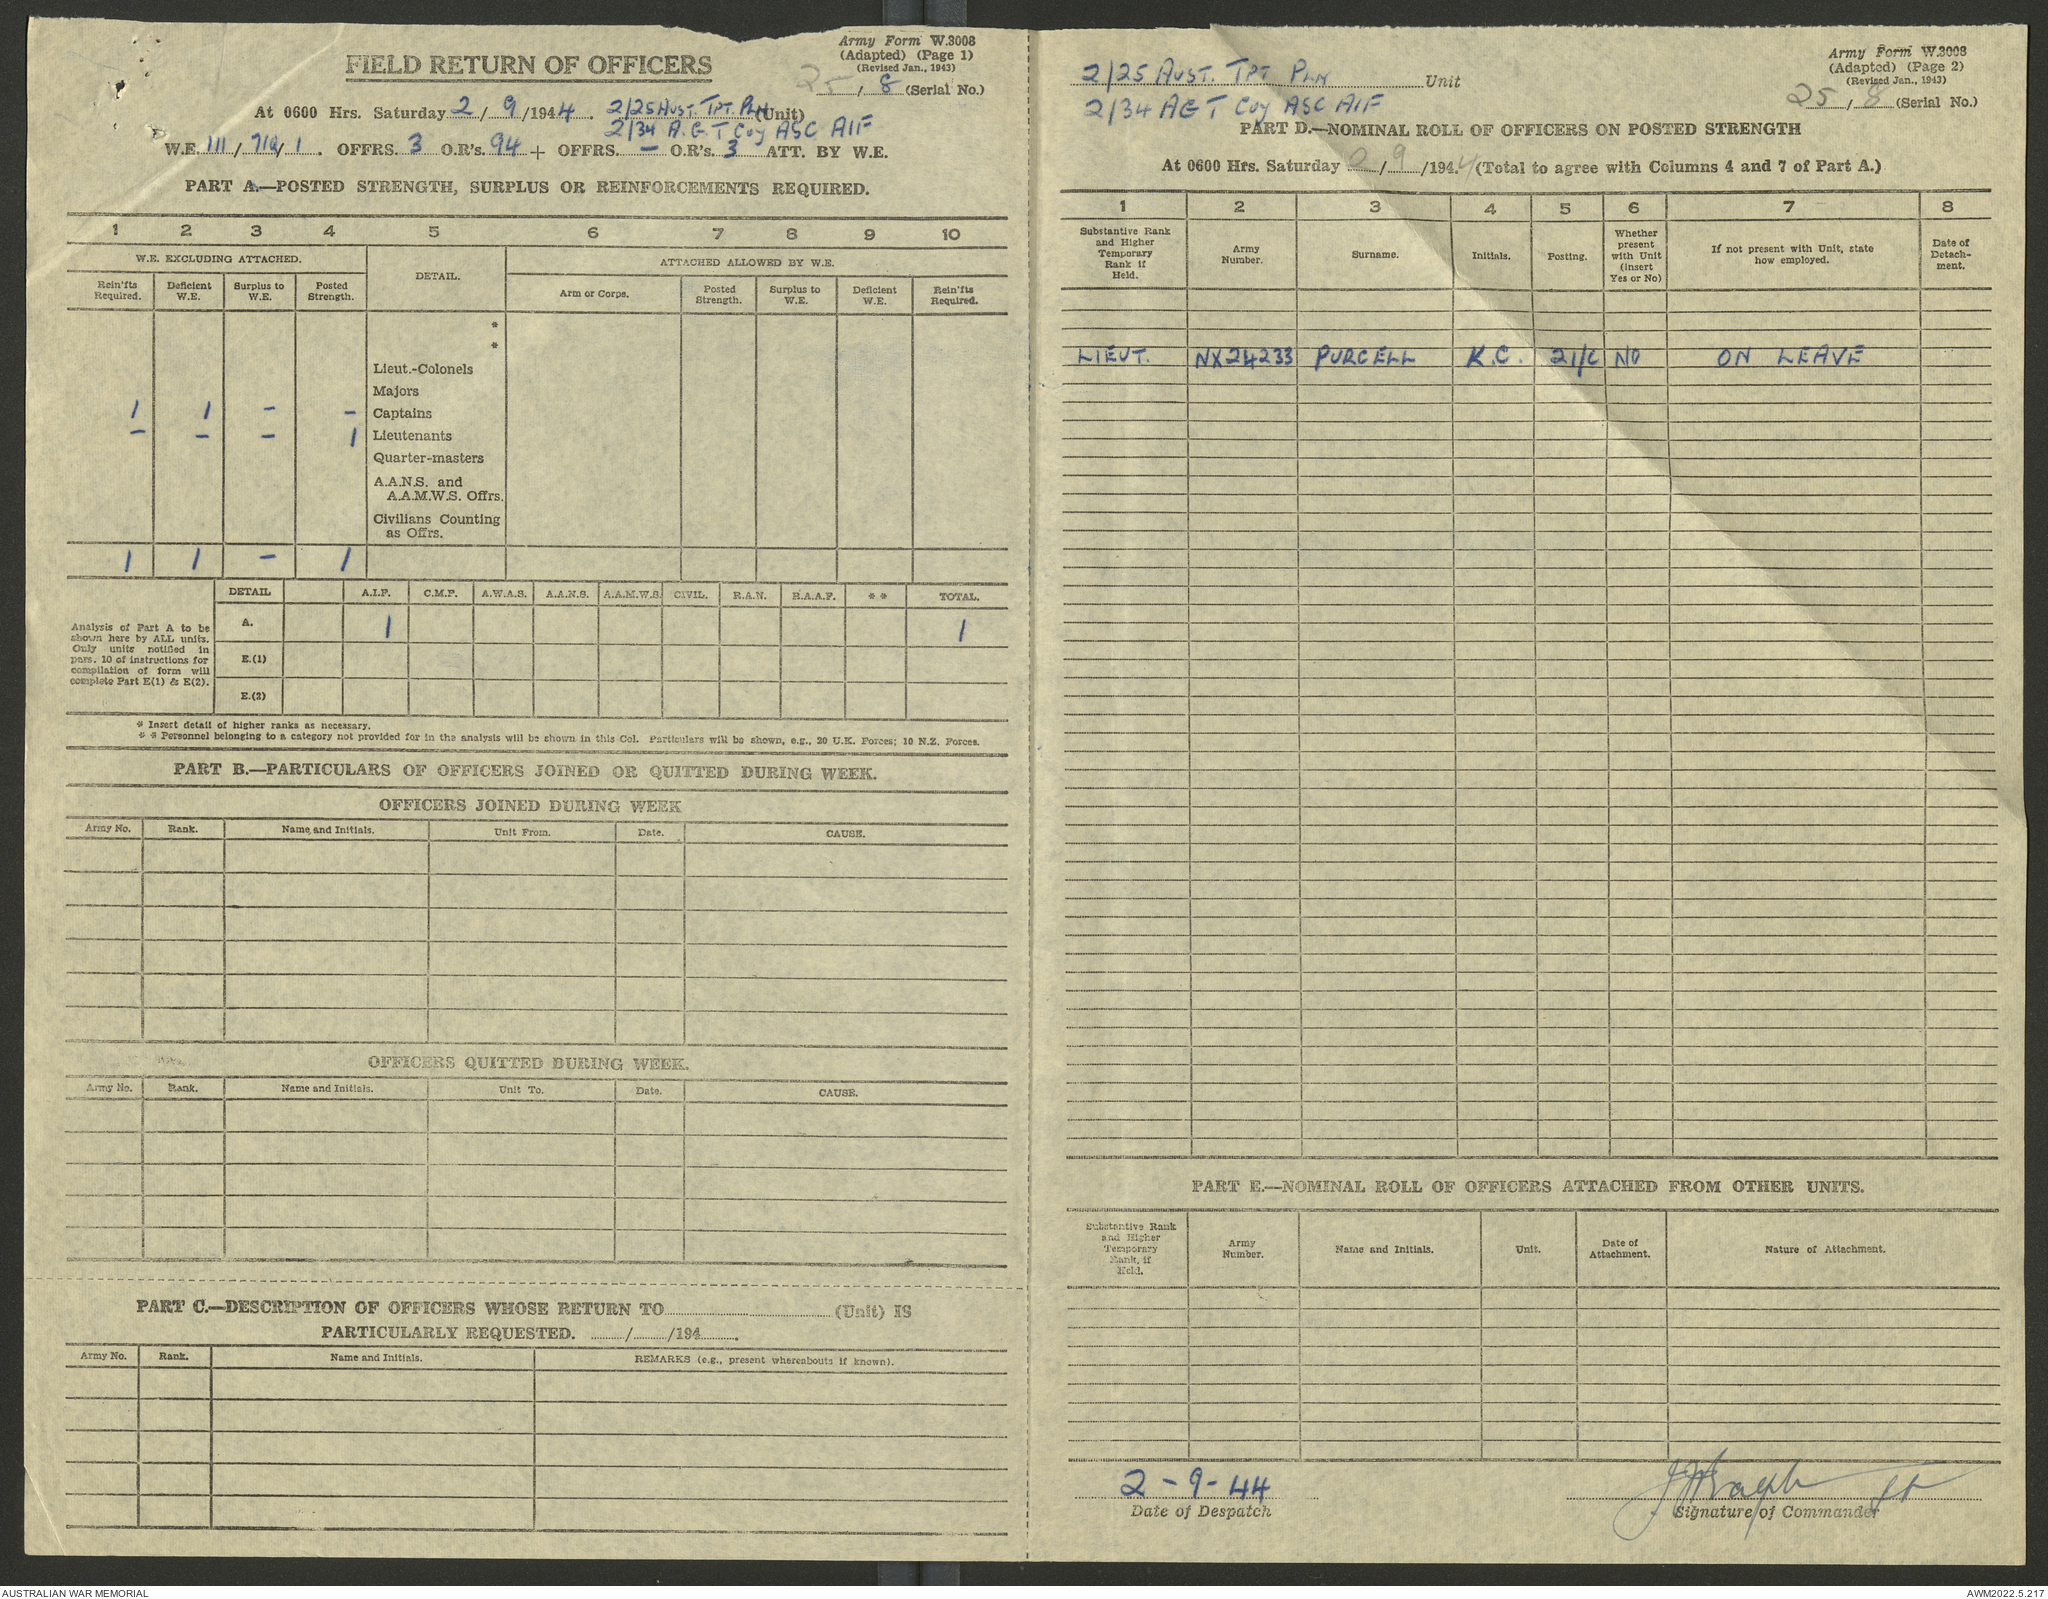 Army Form W.3008
(Adapted) (Page 1)
(Revised Jan., 1943)
FIELD RETURN OF OFFICERS
25/8 (Serial No.)
At 0600 Hrs. Saturday 2/9/1944. 2/25 AUST. TPT. PLN (Unit)
2/34 A.G.T Coy ASC AIF
W.E. III/71a/1. OFFRS. 3 O.R's. 94 + OFFRS. — O.R's. 3 ATT. BY W.E.
PART A.—POSTED STRENGTH, SURPLUS OR REINFORCEMENTS REQUIRED.
1 2 3 4 5 6 7 8 9 10
W.E. EXCLUDING ATTACHED. DETAIL. ATTACHED ALLOWED BY W.E.
Rein'fts Required. Deficient W.E. Surplus to W.E. Posted Strength. Arm or Corps. Posted Strength. Surplus to W.E. Deficient W.E. Rein'fts Required.
*
*
Lieut.-Colonels
Majors
1 1 - - Captains
- - - 1 Lieutenants
Quarter-masters
A.A.N.S. and
A.A.M.W.S. Offrs.
Civilians Counting
as Offrs.
1 1 - 1
DETAIL A.I.F. C.M.F. A.W.A.S. A.A.N.S. A.A.M.W.S. CIVIL. R.A.N. R.A.A.F. * * TOTAL.
Analysis of Part A to be
shown here by ALL units.
Only units notified in
para. 10 of instructions for
compilation of form will
complete Part E(1) & E(2).
A. 1 1
E.(1)
E.(2)
* Insert detail of higher ranks as necessary.
* * Personnel belonging to a category not provided for in the analysis will be shown in this Col. Particulars will be shown, e.g., 20 U.K. Forces; 10 N.Z. Forces.
PART B.—PARTICULARS OF OFFICERS JOINED OR QUITTED DURING WEEK.
OFFICERS JOINED DURING WEEK
Army No. Rank. Name and Initials. Unit From. Date. CAUSE.
OFFICERS QUITTED DURING WEEK.
Army No. Rank. Name and Initials. Unit To. Date. CAUSE.
PART C.—DESCRIPTION OF OFFICERS WHOSE RETURN TO (Unit) IS
PARTICULARLY REQUESTED. / /194 .
Army No. Rank. Name and Initials. REMARKS (e.g., present whereabouts if known).
Army Form W.3008
(Adapted) (Page 2)
(Revised Jan., 1943)
2/25 AUST. TPT PLN Unit
25/8 (Serial No.)
2/34 AGT Coy ASC AIF
PART D.—NOMINAL ROLL OF OFFICERS ON POSTED STRENGTH
At 0600 Hrs. Saturday 2/9/1944 (Total to agree with Columns 4 and 7 of Part A.)
1 2 3 4 5 6 7 8
Substantive Rank and Higher Temporary Rank if Held. Army Number. Surname. Initials. Posting. Whether present with Unit (insert Yes or No) If not present with Unit, state how employed. Date of Detachment.
LIEUT. NX24233 PURCELL K.C. 2I/C NO ON LEAVE
PART E.—NOMINAL ROLL OF OFFICERS ATTACHED FROM OTHER UNITS.
Substantive Rank and Higher Temporary Rank, if Held. Army Number. Name and Initials. Unit. Date of Attachment. Nature of Attachment.
2-9-44
Date of Despatch
Signature of Commander
AUSTRALIAN WAR MEMORIAL
AWM2022.5.217